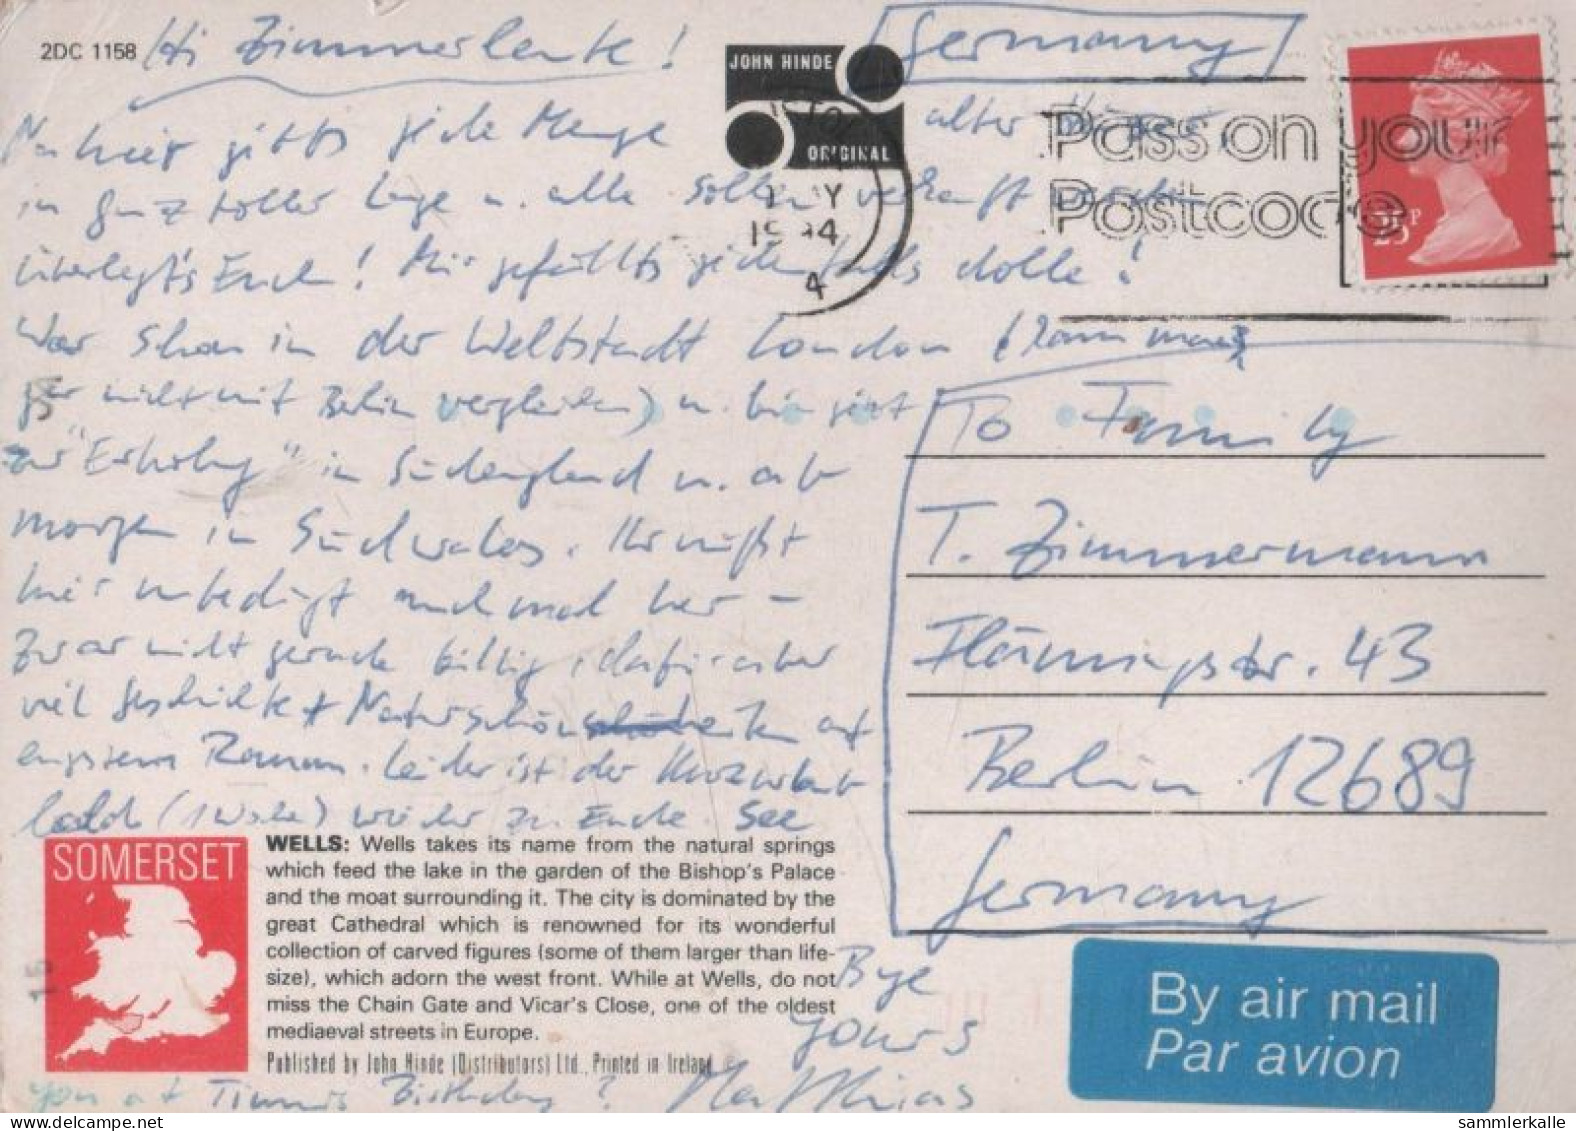 2DC 1158
Hi Zimmerleute!
JOHN HINDE
ORIGINAL
Germany
MAY
1994
4
Pass on your
Postcode
25P
Na hier gibts jede Menge alter
in ganz toller Lage u. alle sollen verkauft werden
überlegt's Euch! Mir gefällts jedenfalls dolle!
War schon in der Weltstadt London (kann man
gar nicht mit Berlin vergleichen) u. bin jetzt
zur "Erholung" in Südengland u. ab
morgen in Südwales. Ihr müßt
hier unbedingt auch mal her -
Zwar nicht gerade billig, dafür aber
viel Geschichte + Naturschönheiten auf
engstem Raum. Leider ist der Kurzurlaub
bald (1 Woche) wieder zu Ende. See
you at Timmis Birthday?
Bye
yours
Matthias
To Family
T. Zimmermann
Flämingstr. 43
Berlin 12689
Germany
SOMERSET
WELLS: Wells takes its name from the natural springs
which feed the lake in the garden of the Bishop's Palace
and the moat surrounding it. The city is dominated by the
great Cathedral which is renowned for its wonderful
collection of carved figures (some of them larger than life-
size), which adorn the west front. While at Wells, do not
miss the Chain Gate and Vicar's Close, one of the oldest
mediaeval streets in Europe.
Published by John Hinde (Distributors) Ltd., Printed in Ireland
By air mail
Par avion
sammlerkalle